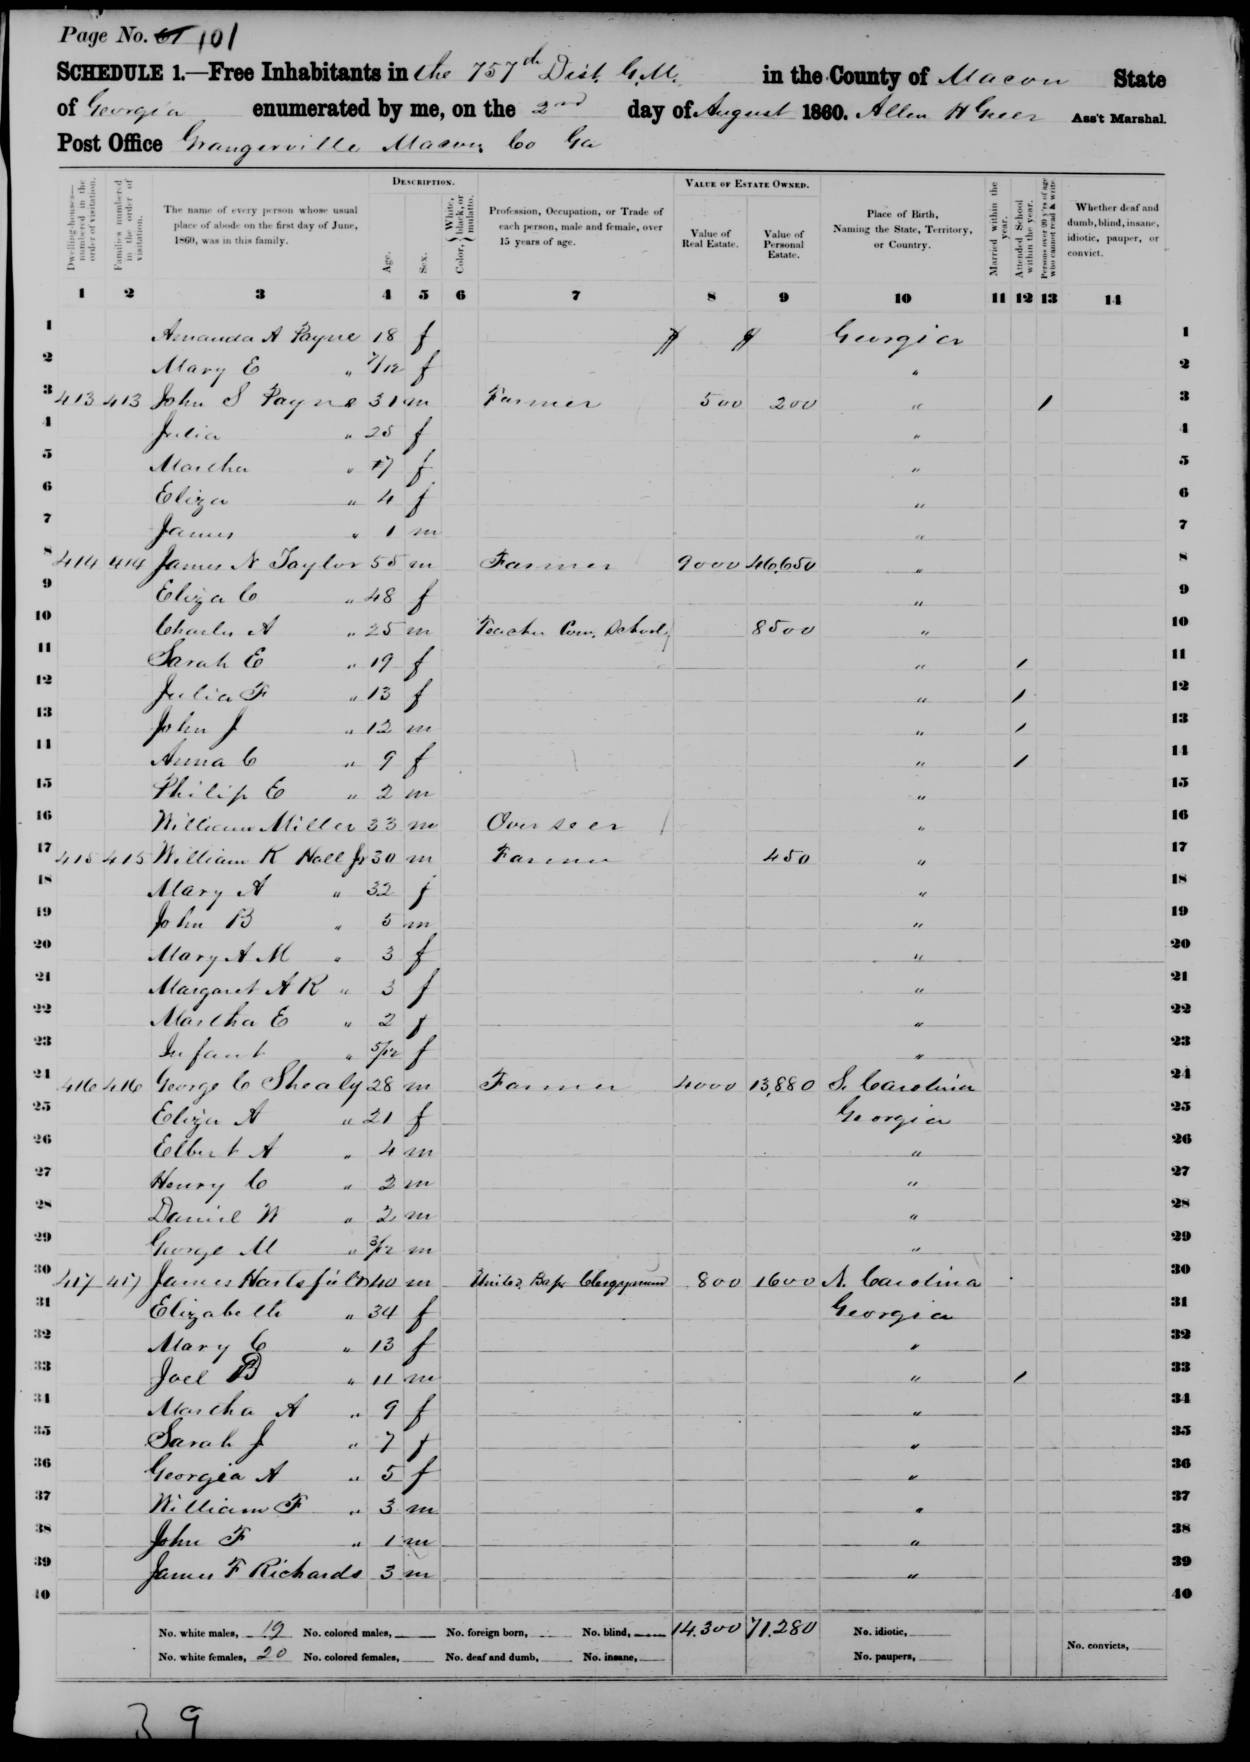 Page No. 101
SCHEDULE 1.—Free Inhabitants in the 757th Dist. G.M. in the County of Macon State
of Georgia enumerated by me, on the 2nd day of August 1860. Allen H Greer Ass't Marshal.
Post Office Grangerville Macon Co Ga
DESCRIPTION. VALUE OF ESTATE OWNED.
Dwelling-houses—numbered in the order of visitation. Families numbered in the order of visitation. The name of every person whose usual place of abode on the first day of June, 1860, was in this family. Age. Sex. Color, { White, black, or mulatto. Profession, Occupation, or Trade of each person, male and female, over 15 years of age. Value of Real Estate. Value of Personal Estate. Place of Birth, Naming the State, Territory, or Country. Married within the year. Attended School within the year. Persons over 20 y'rs of age who cannot read & write. Whether deaf and dumb, blind, insane, idiotic, pauper, or convict.
1 2 3 4 5 6 7 8 9 10 11 12 13 14
1 Amanda A Payne 18 f Georgia 1
2 Mary E " 7/12 f " 2
3 413 413 John S Payne 31 m Farmer 500 200 " / 3
4 Julia " 25 f " 4
5 Martha " 7 f " 5
6 Eliza " 4 f " 6
7 James " 1 m " 7
8 414 414 James N Taylor 55 m Farmer 9000 46,650 " 8
9 Eliza C " 48 f " 9
10 Charles A " 25 m Teacher Com. School 8500 " 10
11 Sarah E " 19 f " / 11
12 Julia F " 13 f " / 12
13 John J " 12 m " / 13
14 Anna C " 9 f " / 14
15 Philip E " 2 m " 15
16 William Miller 33 m Overseer " 16
17 415 415 William K Hall Jr 30 m Farmer 450 " 17
18 Mary A " 32 f " 18
19 John B " 5 m " 19
20 Mary A M " 3 f " 20
21 Margaret A K " 3 f " 21
22 Martha E " 2 f " 22
23 Infant " 5/12 f " 23
24 416 416 George C Shealy 28 m Farmer 4000 13,880 S. Carolina 24
25 Eliza A " 21 f Georgia 25
26 Elbert A " 4 m " 26
27 Henry C " 2 m " 27
28 Daniel W " 2 m " 28
29 George M " 3/12 m " 29
30 417 417 James Hartsfield 40 m United Bap Clergyman 800 1600 N. Carolina 30
31 Elizabeth " 34 f Georgia 31
32 Mary C " 13 f " 32
33 Joel B " 11 m " / 33
34 Martha A " 9 f " 34
35 Sarah J " 7 f " 35
36 Georgia A " 5 f " 36
37 William F " 3 m " 37
38 John F " 1 m " 38
39 James F Richards 3 m " 39
40 40
No. white males, 19 No. colored males, No. foreign born, No. blind, 14,300 71,280 No. idiotic,
No. white females, 20 No. colored females, No. deaf and dumb, No. insane, No. paupers, No. convicts,
39